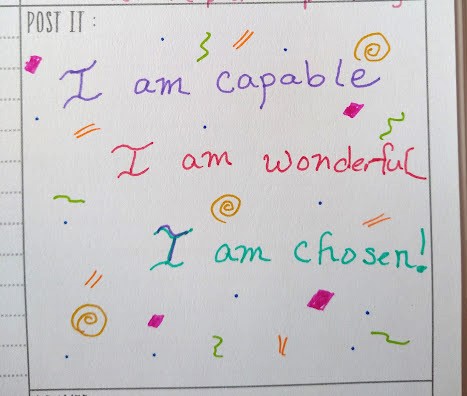 POST IT :
I am capable
I am wonderful
I am chosen!